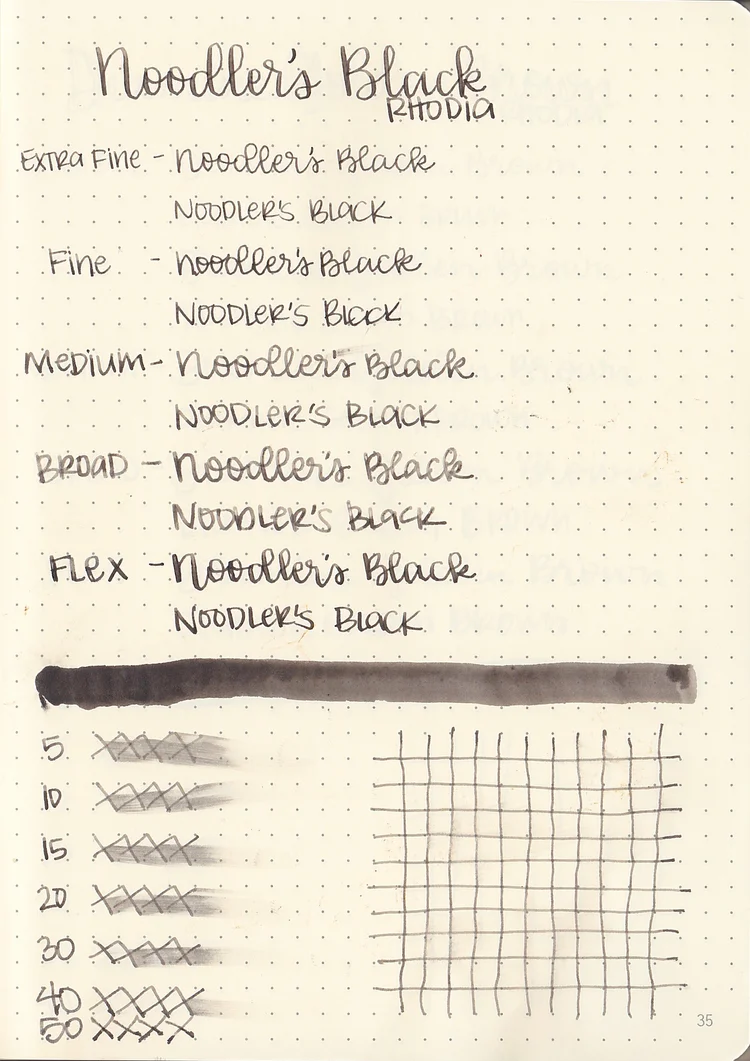 Noodler's Black
RHODIA
Extra Fine - Noodler's Black
NOODLER'S BLACK
Fine - Noodler's Black
NOODLER'S BLACK
Medium - Noodler's Black
NOODLER'S BLACK
BROAD - Noodler's Black
NOODLER'S BLACK
FLEX - Noodler's Black
NOODLER'S BLACK
5 XXXX
10 XXXX
15 XXXX
20 XXXX
30 XXXX
40 XXXX
50 XXXX
35